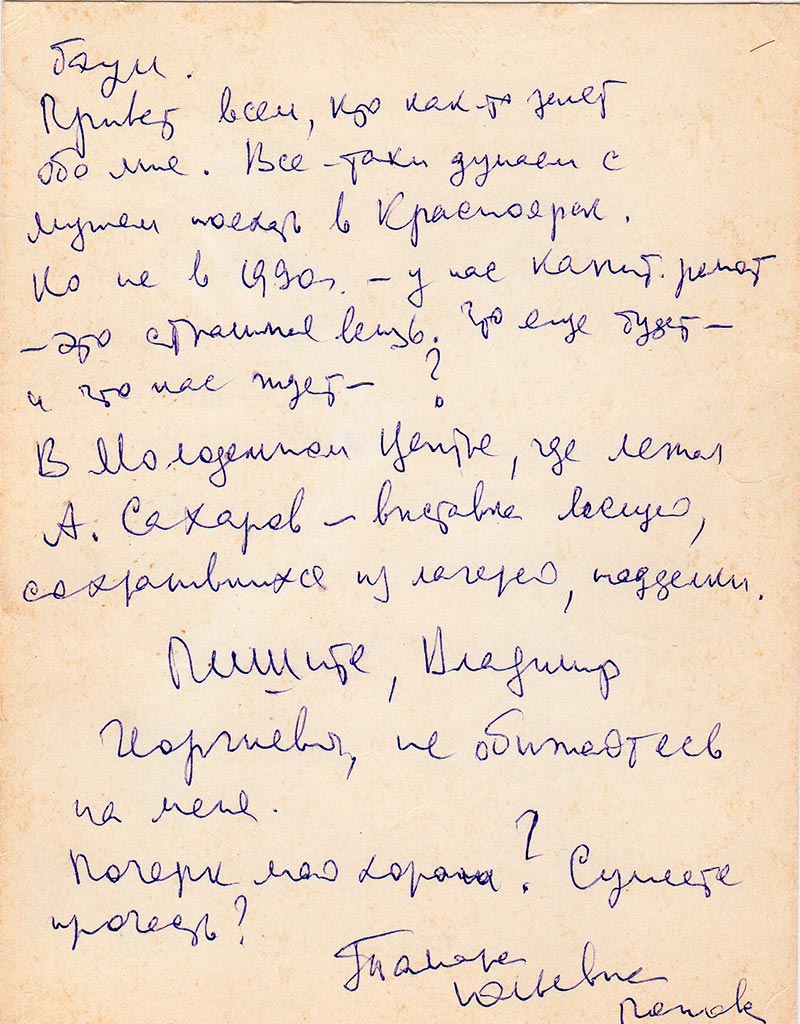 баум.
Привет всем, кто как-то знает
обо мне. Все-таки думаем с
мужем поехать в Красноярск.
Но не в 1990г. – у нас капит. ремонт
– это страшная вещь. Что еще будет –
и что нас ждет – ?
В Молодежном Центре, где лежал
А. Сахаров – выставка вещей,
сохранившихся из лагерей, поделки.
Пишите, Владимир
Георгиевич, не обижайтесь
на меня.
Почерк мой хорош? Сумеете
прочесть?
Тамара
Юльевна